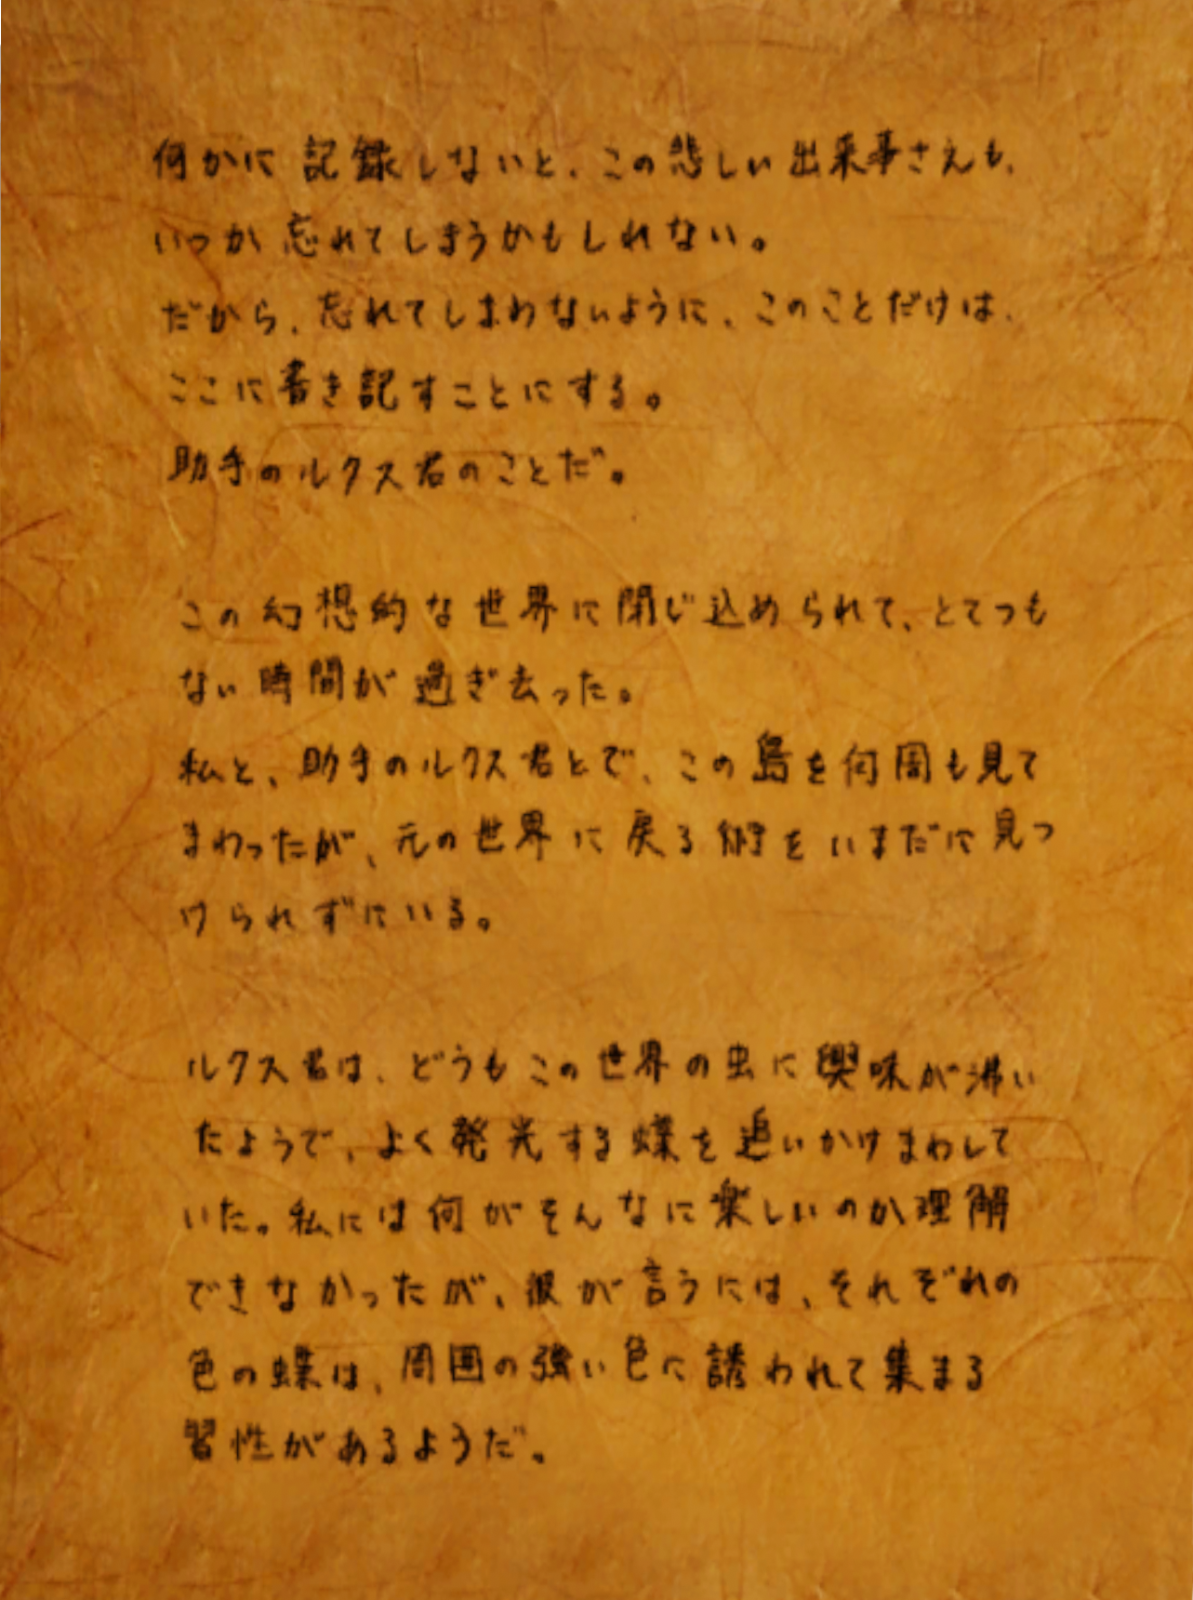 何かに記録しないと、この悲しい出来事さえも、
いつか忘れてしまうかもしれない。
だから、忘れてしまわないように、このことだけは、
ここに書き記すことにする。
助手のルクス君のことだ。
この幻想的な世界に閉じ込められて、とてつも
ない時間が過ぎ去った。
私と、助手のルクス君とで、この島を何周も見て
まわったが、元の世界に戻る術をいまだに見つ
けられずにいる。
ルクス君は、どうもこの世界の虫に興味が沸い
たようで、よく発光する蝶を追いかけまわして
いた。私には何がそんなに楽しいのか理解
できなかったが、彼が言うには、それぞれの
色の蝶は、周囲の強い色に誘われて集まる
習性があるようだ。